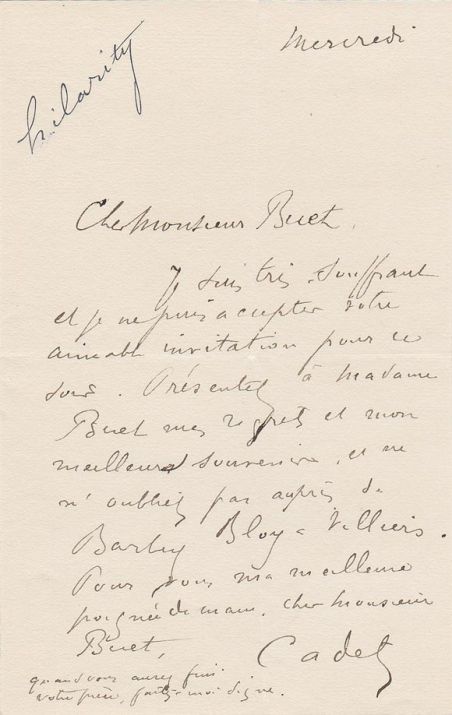 Mercredi
hilarity
Cher Monsieur Buet,
Je suis très souffrant
et je ne puis accepter votre
aimable invitation pour ce
soir. Présentez à Madame
Buet mes regrets et mon
meilleur souvenir, et ne
m'oubliez pas auprès de
Barbey Bloy & Villiers.
Pour vous ma meilleure
poignée de main, cher Monsieur
Buet,
Cadet
quand vous aurez fini
votre pièce, faites-moi signe.